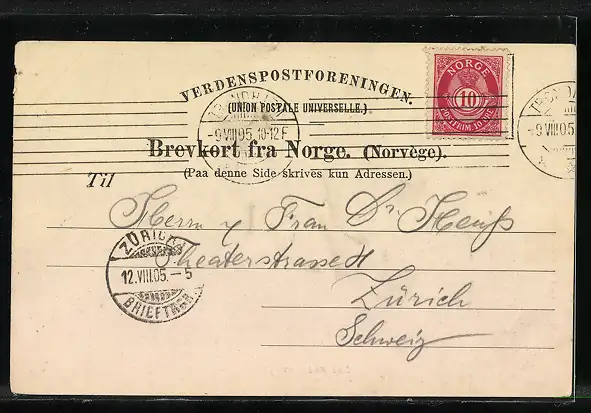 VERDENSPOSTFORENINGEN.
(UNION POSTALE UNIVERSELLE.)
NORGE
10
-9 VIII 05. 10-12 F
-9 VIII 05
Brevkort fra Norge. (Norvège).
(Paa denne Side skrives kun Adressen.)
Til
Herrn & Frau Dr Heuß
Theaterstrasse
Zürich
Schweiz
ZÜRICH
12.VIII.05. - 5
BRIEFTRÄG